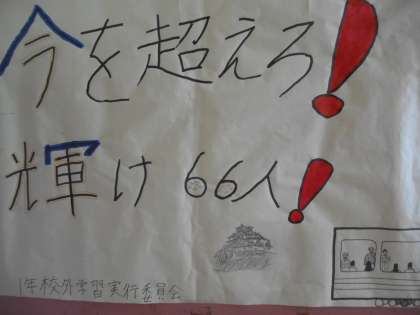 今を超えろ!
輝け 66人!
1年校外学習実行委員会